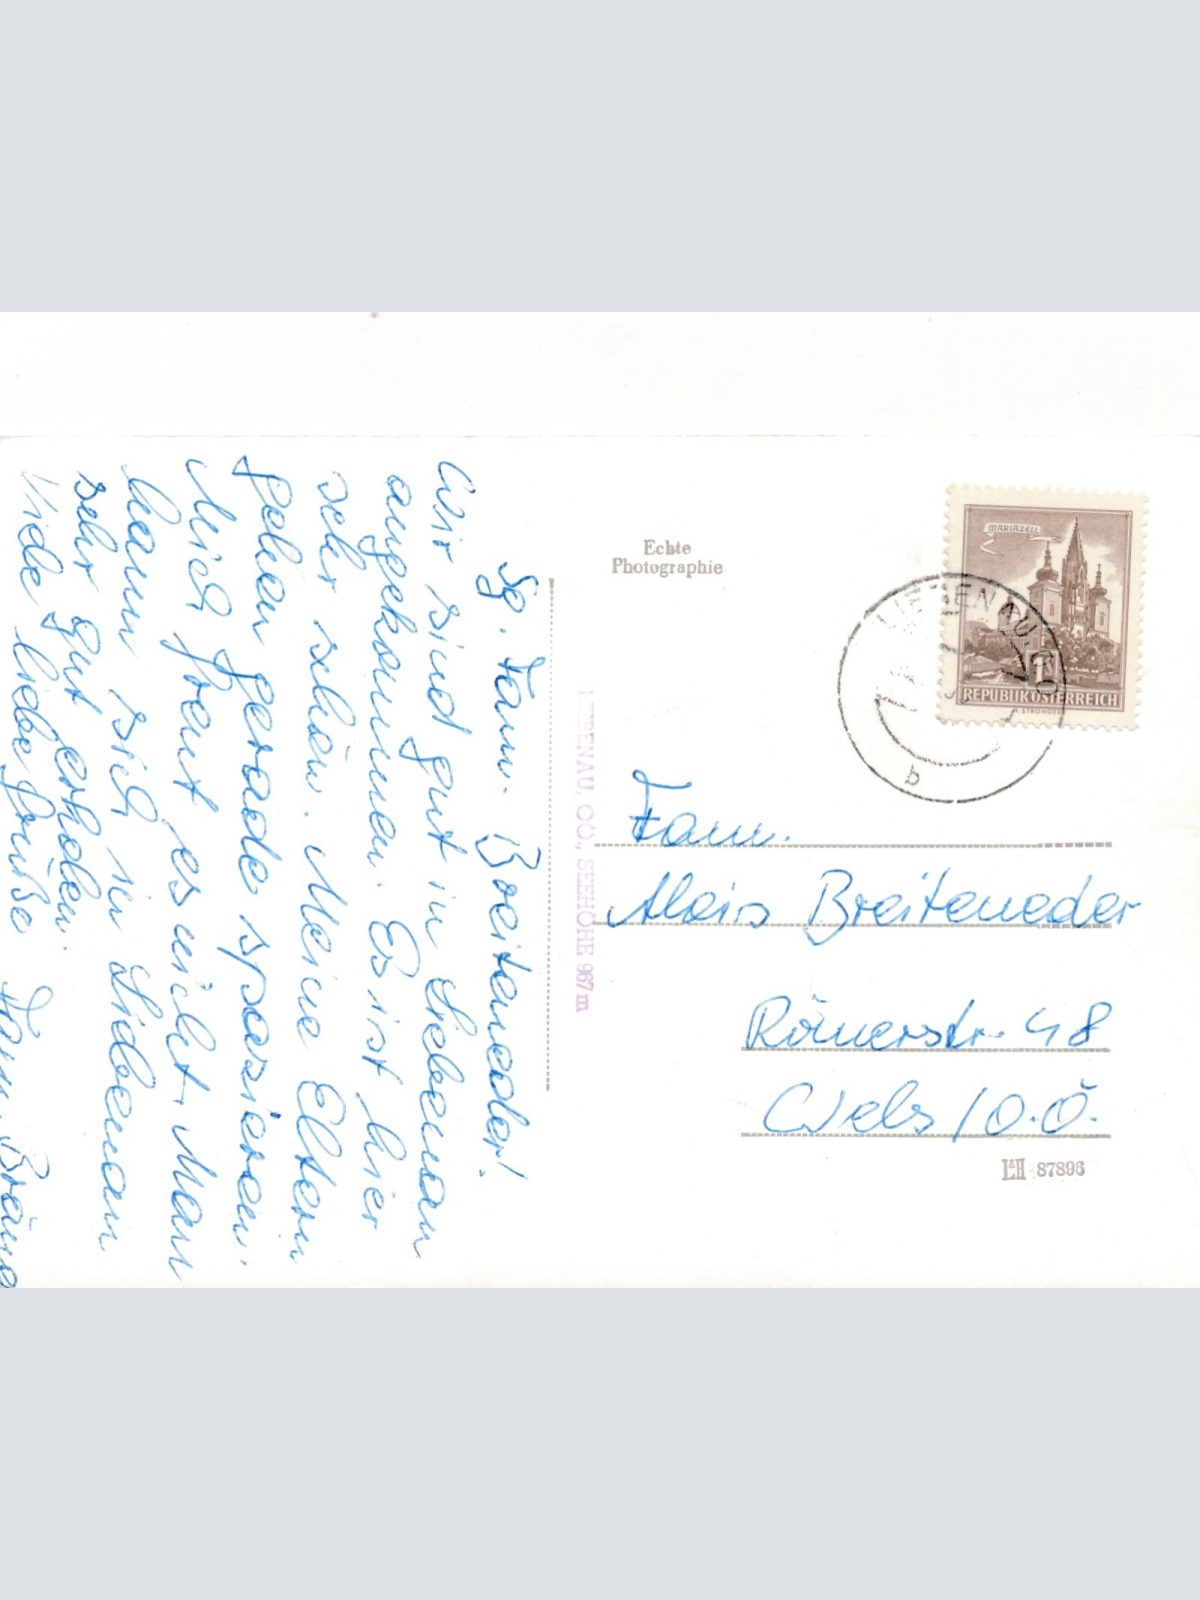 Sg. Fam. Breiteneder!
Wir sind gut in Liebenau
angekommen. Es ist hier
sehr schön. Meine Eltern
gehen gerade spazieren.
Mich freut es nicht. Man
kann sich in Liebenau
sehr gut erholen.
Viele liebe Grüße Fam.
Echte
Photographie
MARIAZELL
1
REPUBLIK ÖSTERREICH
LIEBENAU, OÖ
b
LIEBENAU, OÖ., SEEHÖHE 967 m
Fam.
Alois Breiteneder
Römerstr. 48
Wels / O.Ö.
87896